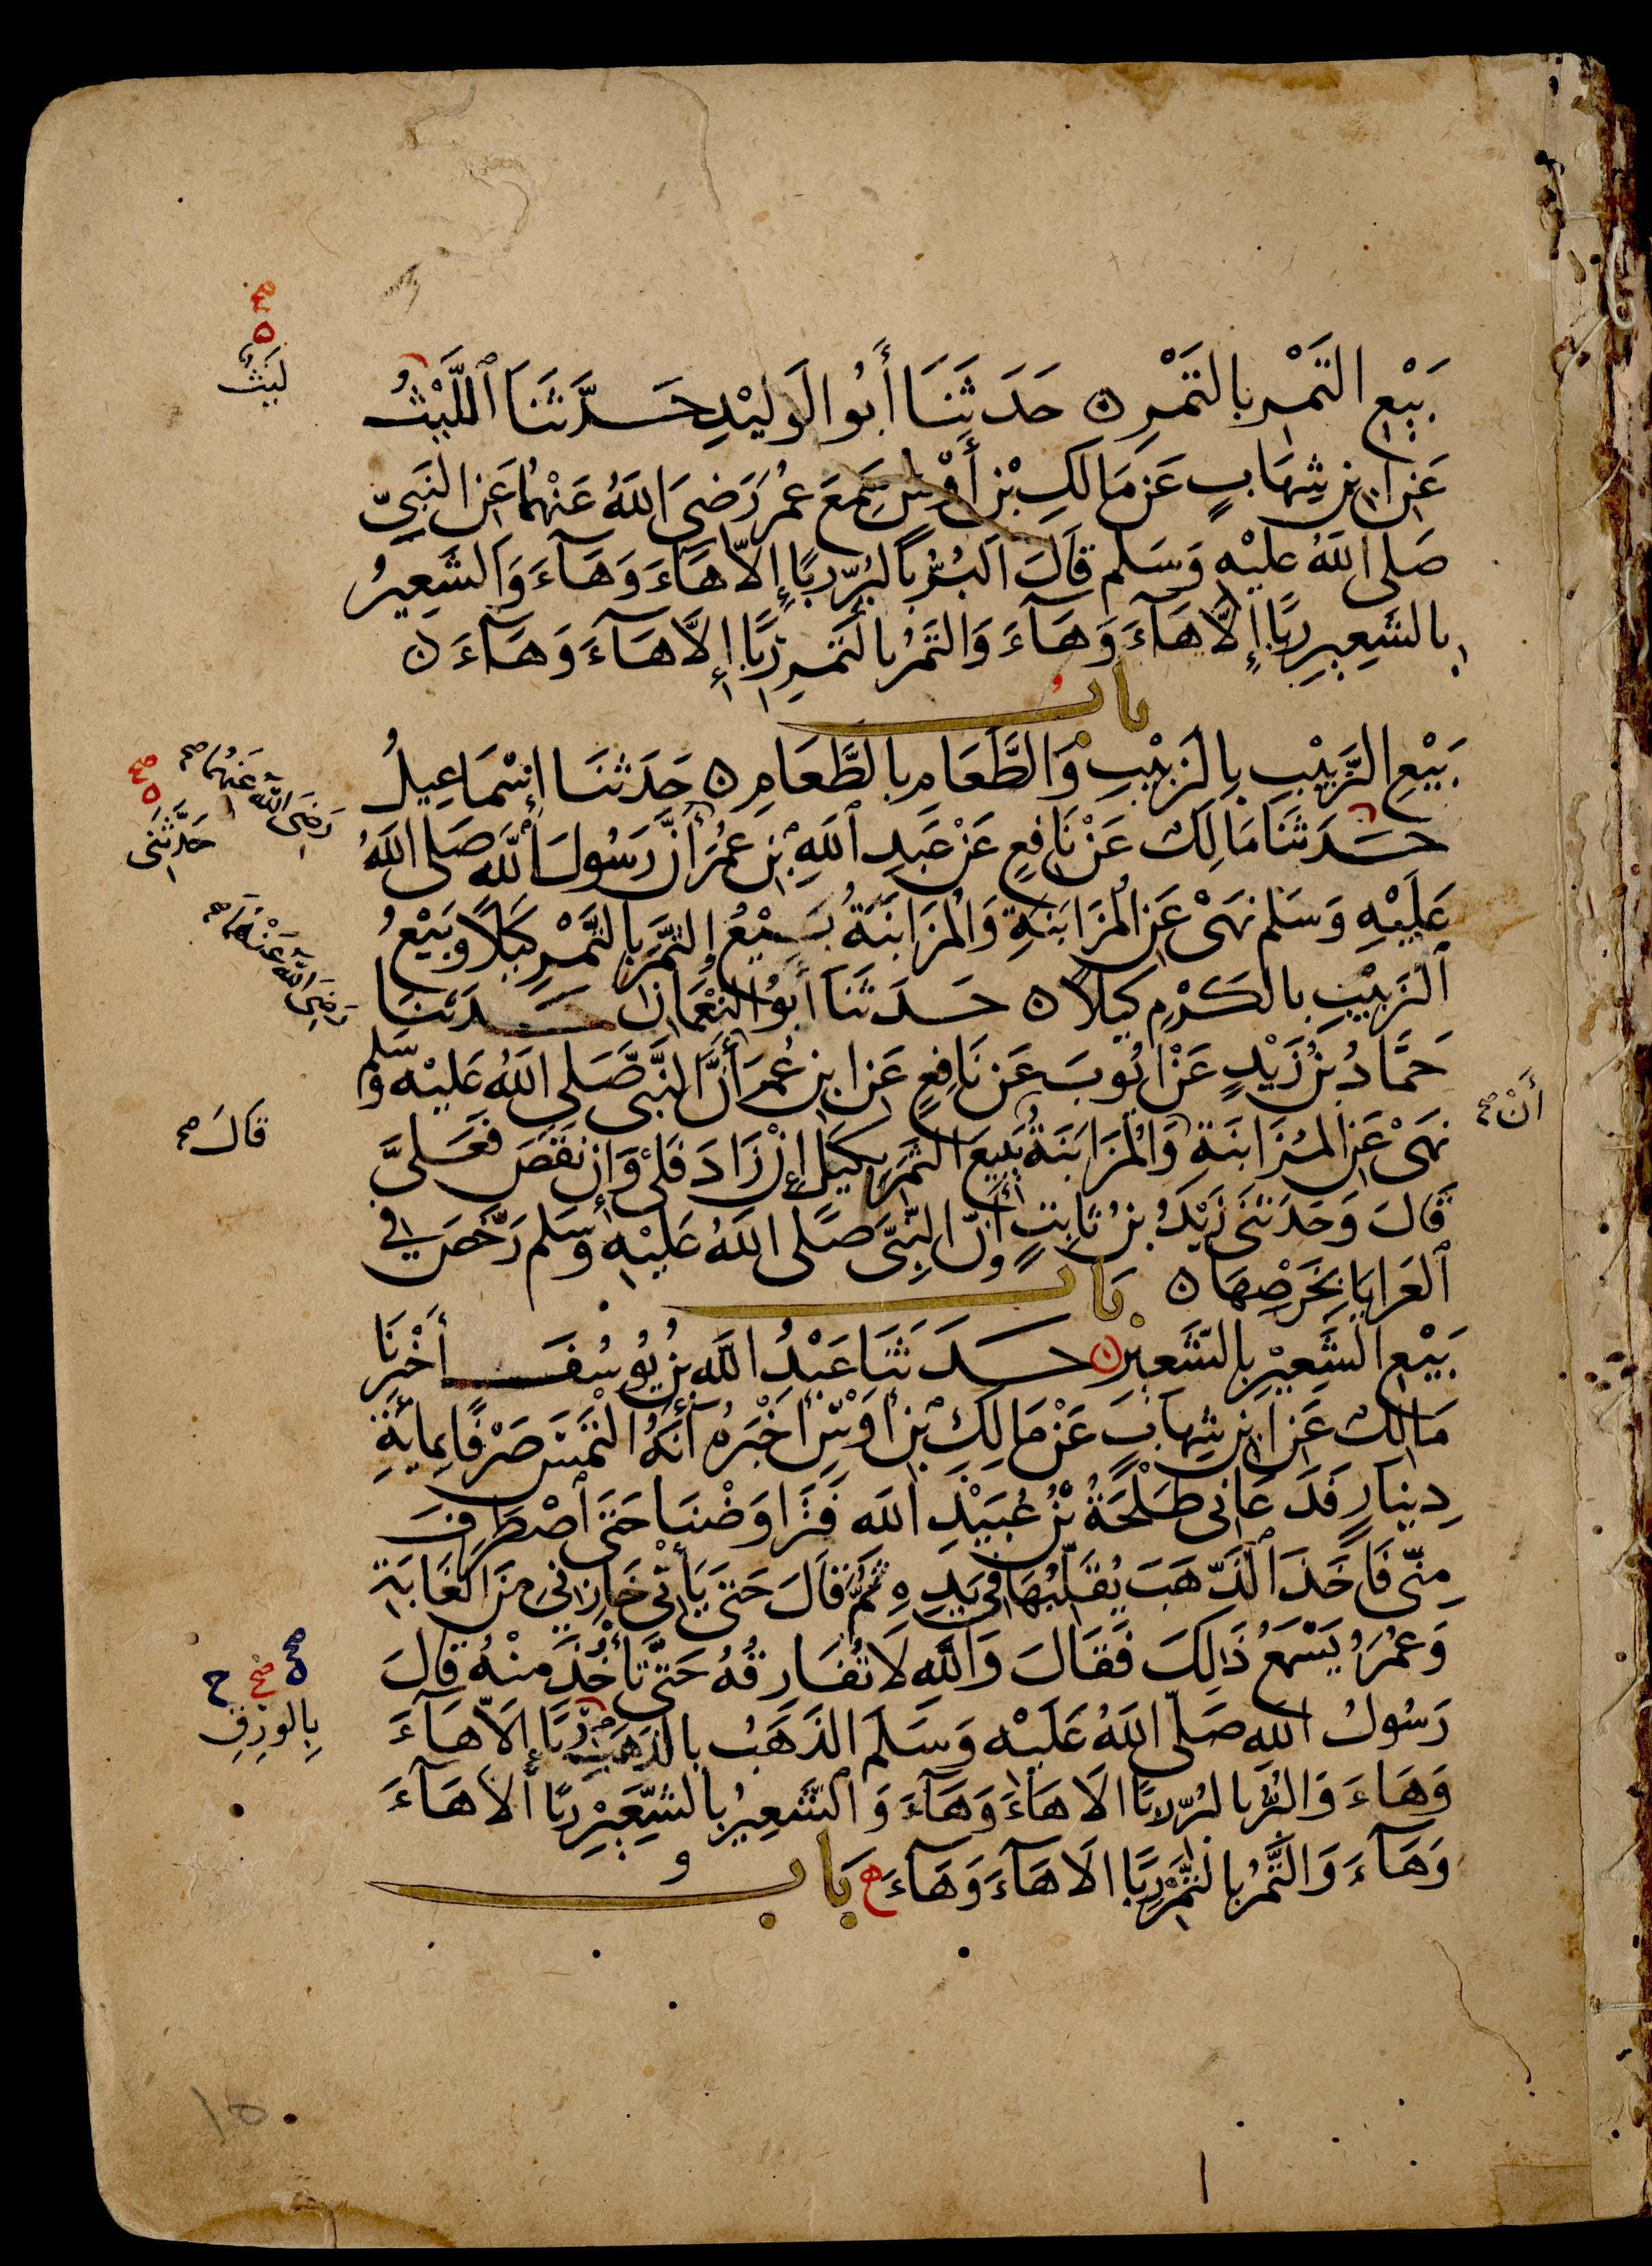 بَيْعِ التَمْرِ بِالتَمْرِ ۞ حَدَثَنَا أَبُو الوَلِيْدِ حَدَّثَنَا ٱللَّيْثُ
لَيْثٌ
عَنِ ابْنِ شِهَابٍ عَنْ مَالِكِ بْنِ أَوْسٍ سَمِعَ عُمَرَ رَضِىَ اللَّهُ عَنْهُمَا عَنِ النَبِىِّ
صَلى اللهُ عَليْهِ وَسَلم قَالَ اَلبُرُّ بِالبُرِّ رِبًا إِلاَّ هَآءَ وَهَآءَ وَالشَعِيرُ
بِالشَعِيرِ رِبًا إِلاَّ هَآءَ وَهَآءَ وَالتَمْرُ بِالتَمْرِ رِبًا إِلاَّ هَآءَ وَهَآءَ ۞
باب
بَيْعِ الزَّبِيْبِ بِالزَبِيْبِ وَالطَّعَامِ بِالطَّعَامِ ۞ حَدَثنَا إِسْمَاعِيلُ
رَضِىَ اللَّهُ عَنْهُمَا صح
حَدَّثَنِى
حَدَثنَا مَالِكٌ عَنْ نَافِعٍ عَنْ عَبدِ ٱللَهِ بْنِ عُمَرَ أَنَّ رَسُولَ اللَّهِ صَلى اللهُ
عَلَيْهِ وَسَلم نَهَىْ عَنِ المُزَابَنَةِ وَالمُزَابَنَةُ بَيْعُ التَّمَرِ بِالتَّمْرِ كَيْلاً وَبَيْعُ
رَضِىَ اللَّهُ عَنْهُمَا صح
ٱلزَبِيْبِ بِالكَرْمِ كَيْلاً ۞ حَدَثَنَا أَبُو النُعْمَانِ حَدَثنَا
حَمَّادُ بْنُ زَيْدٍ عَنْ ايُوبَ عَن نَافِعٍ عَنِ ابنِ عُمَرَ أَنَّ النَّبِىَّ صَلى اللَّهُ عَلَيْهِ وَسَلم
أَنْ صح
نَهَىْ عَنِ المُزَابَنَةِ وَالمُزَابَنَةُ بَيعُ الثَمَرِ بِكَيْلٍ إِنْ زَادَ فَلِى وَإِن نَقَصَ فَعَلَىَّ
قَالَ صح
قَالَ وَحَدَثَنِى زَيْدُ بنُ ثَابِتٍ أَنَّ النَّبِىَّ صَلى اللَّهُ عَلَيْهِ وَسَلم رَخَّصَ فِى
ٱلعَرَايَا بِخَرْصِهَا ۞
بَاب
بَيْعِ الشَعِيْرِ بِالشَّعِيْرِ ۞ حَدَثَنَا عَبْدُ اللَّهِ بْنُ يُوسُفَ أَخْبَرَنَا
مَالِكٌ عَنِ ابْنِ شِهَابٍ عَنْ مَالِكِ بْنِ أَوْسٍ أَخْبَرَهُ أَنَّهُ الْتَمَسَ صَرْفًا بِمِائَةِ
دِينَارٍ فَدَعَانِى طَلْحَةُ بْنُ عُبَيْدِ اللَه فَتَرَاوَضْنَا حَتَى ٱصْطَرَفَ
مِنِّى فَأَخَذَ ٱلذَّهَبَ يُقَلِّبُهَا فِى يَدِهِ ثُمَّ قَالَ حَتى يَأْتِىَ خَازِنِى مِنَ الغَابَةِ
وَعُمَرُ يَسْمَعُ ذَلِكَ فَقَالَ وَاللَّهِ لاَ تُفَارِقُهُ حَتَّى تَأْخُذَ مِنْهُ قَالَ
رَسُولُ اللهِ صَلَى اللهُ عَلَيْهِ وَسَلَم الذَهَبُ بِالذَهَبِ رِبًا إِلاَّ هَآءَ
بِالوَرِقِ
وَهَاءَ وَالبُرُّ بِالبُرِّ رِبًا الاَ هَآءَ وَهَآءَ وَالشَّعِيرُ بِالشَّعِيْرِ رِبًا الاَ هَآءَ
وَهَآءَ وَالتَّمْرُ بِالتَّمْرِ رِبًا الاَ هَآءَ وَهَآءَ بَاب
١٥٠